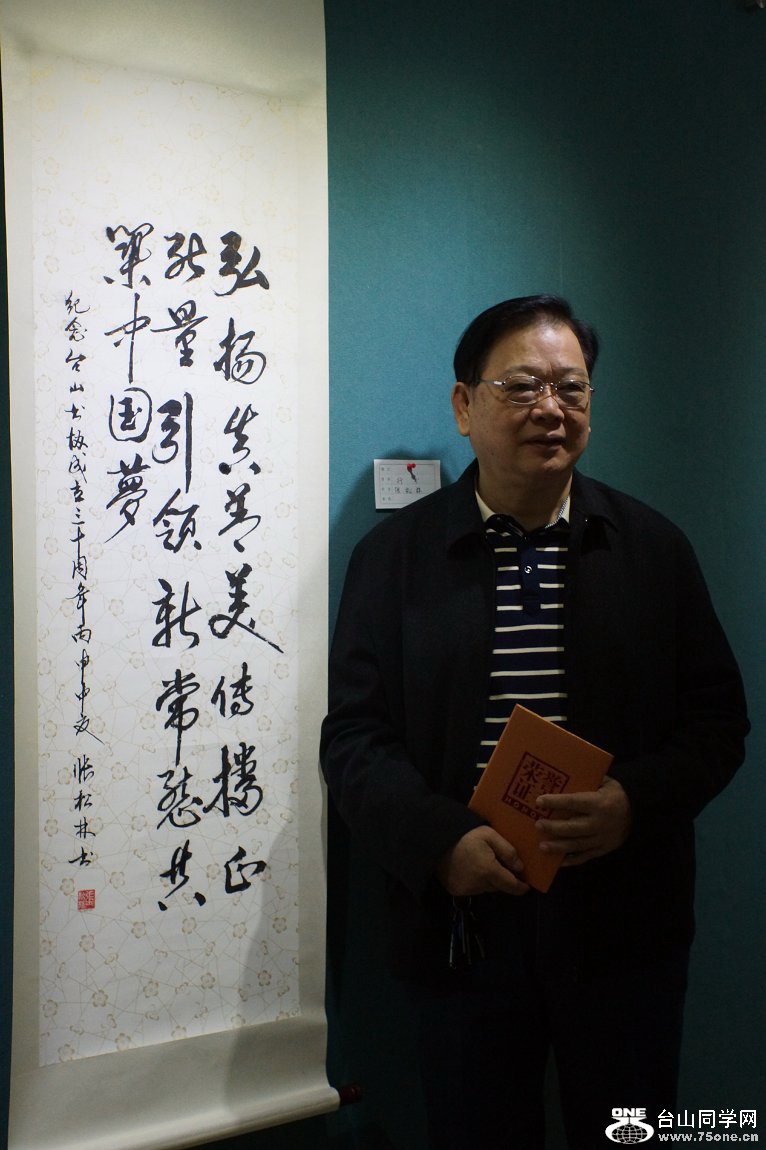 弘扬真善美传播正
能量引领新常态共
筑中国梦
纪念台山书协成立三十周年丙申中夏 张松林书
张松林
荣誉
证书
ONE 台山同学网
www.75one.cn